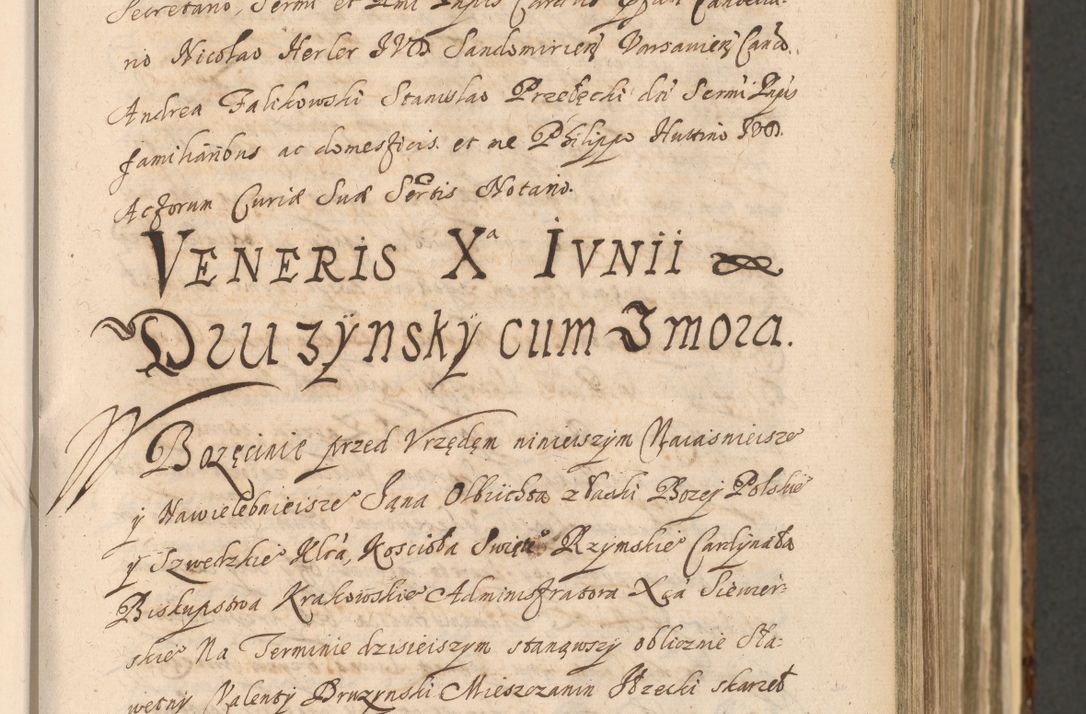 Secretario, Sermi et Rmi Prpis Cardlis pfati Cancella-
rio Nicolao Herler IVD Sandomirien Varsavien Canco.
Andrea Falikowski Stanislao Przełęcki dn Sermi Prpis
familiaribus ac domesticis et me Philippo Huttino IVD.
Actorum Curiæ Suæ Sertis Notario.
VENERIS Xª IVNII
Druzÿnskÿ cum Zmora.
W Bozęcinie przed Vrzędem ninieiszym Naiasnieisze°
y Nawielebnieisze° Jana Olbrichta z łaski Bozej Polskie°
y Szwedzkie° Klra, Koscioła Swięte° Rzymskie° Cardynała
Biskupstwa Krakowskie° Administratora Xcia Siewier-
skie° Na Terminie dzisieiszym stanąwszy oblicznie Sła-
wetny Valenty Druzynski Mieszczanin Iłzecki skarzeł